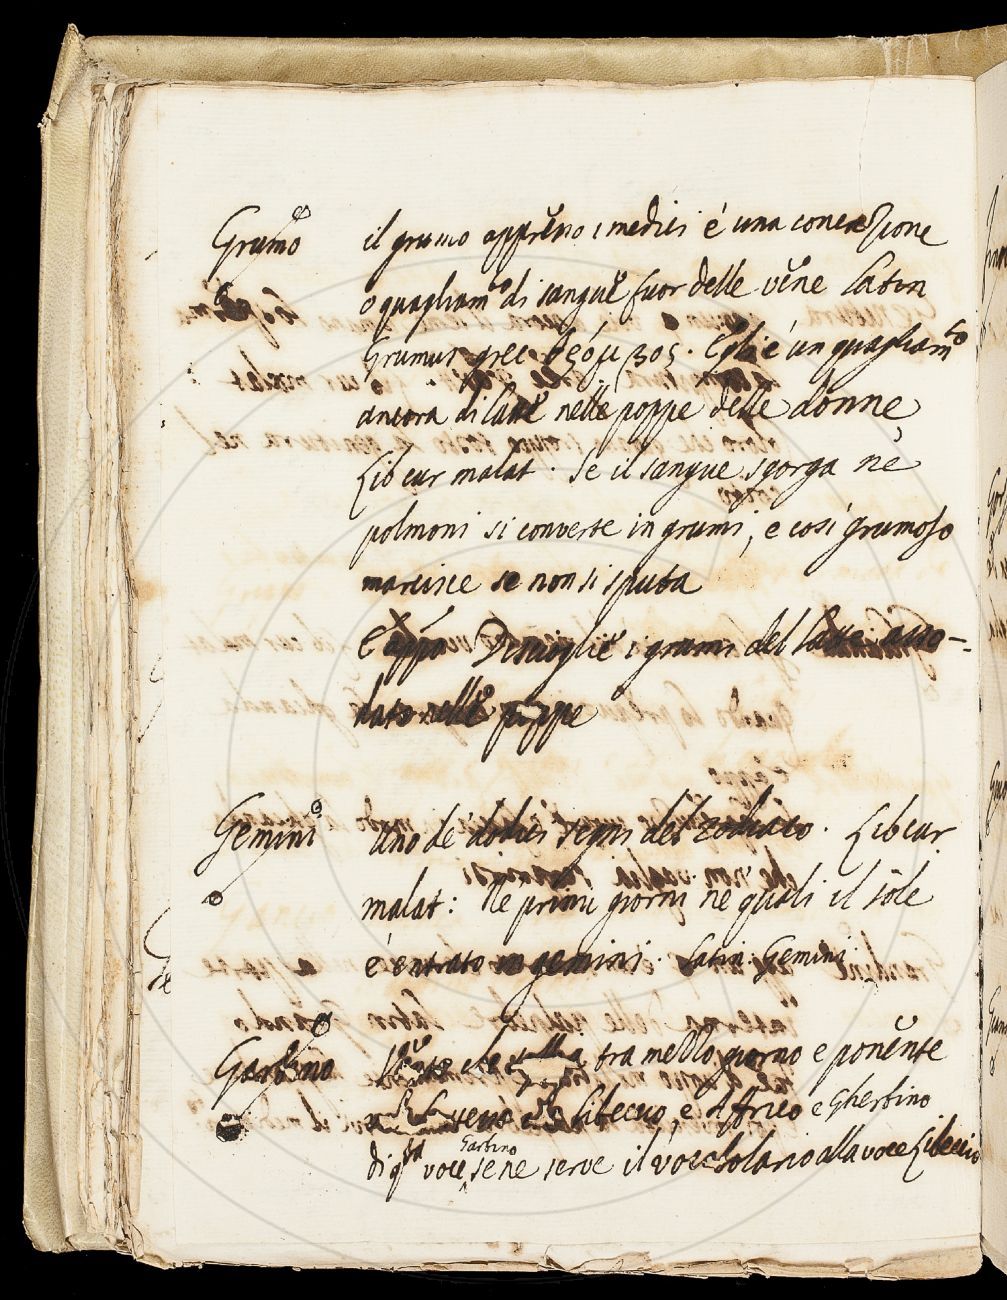 Grumo il grumo appresso i medici é una concrezione
o quagliam.to di sangue fuor delle vene Latin
Grumus grec. Egli é un quagliam.to
ancora di latte nelle poppe delle donne
Lib cur malat. Se il sangue sgorga ne
polmoni si converte in grumi, e cosi grumoso
marcisce se non si sputa
E app.o Discioglie i grumi del latte asso-
dato nelle poppe
Gemini Uno de dodici segni del Zodiaco. Lib cur
malat: Ne primi giorni ne quali il sole
é entrato in gemini. Latin. Gemini
Garbino Vento che soffia tra mezzo giorno e ponente
Libeccio, e Affrico e Gherbino
di q.sta voce Garbino se ne serve il vocabolario alla voce Libeccio